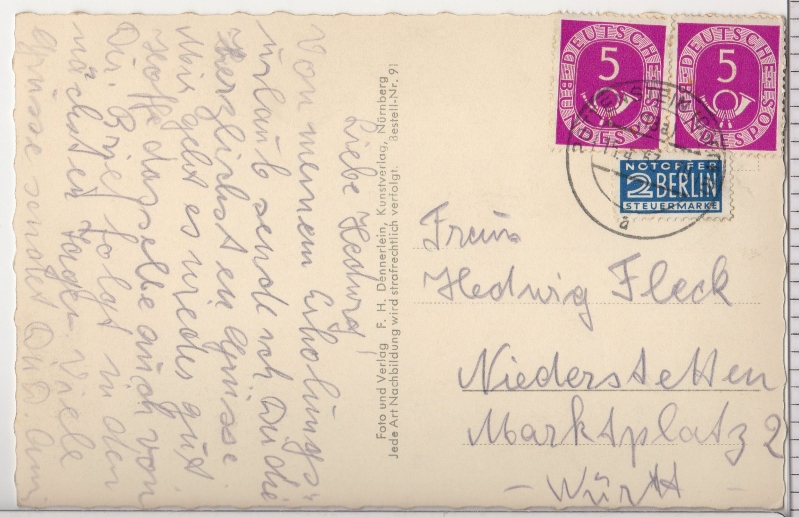 Liebe Hedwig!
Von meinem Erholungs-
urlaub sende ich Dir die
herzlichsten Grüsse.
Mir geht es wieder gut
hoffe dasselbe auch von
Dir. Brief folgt in den
nächsten Tagen. Viele
Grüsse sendet Dir
Foto und Verlag F. H. Dennerlein, Kunstverlag, Nürnberg
Jede Art Nachbildung wird strafrechtlich verfolgt. Bestell-Nr. 91
DEUTSCHE BUNDESPOST
5
DEUTSCHE BUNDESPOST
5
NOTOPFER
2 BERLIN
STEUERMARKE
a
Hedwig Fleck
Niederstetten
Marktplatz 2
- Württ -